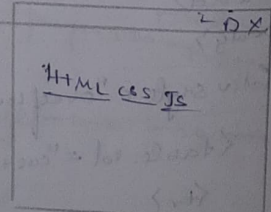 HTML CSS JS